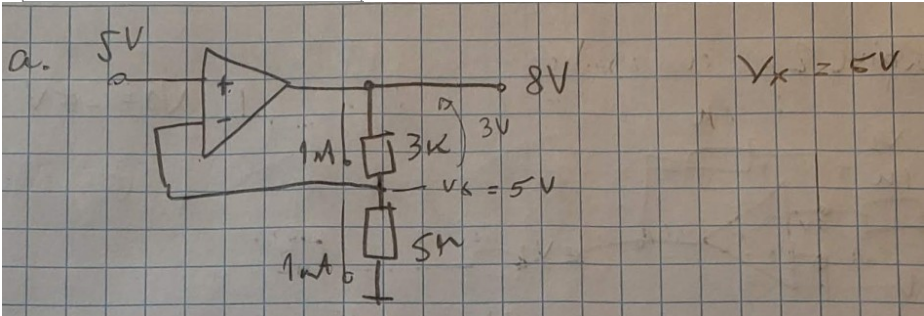 a. 5V
Vx = 5V
+
-
8V
3V
1mA
3K
Vx = 5V
5K
1mA